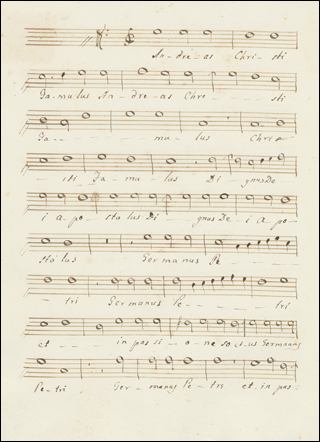 An-dre-as Chri-sti
Famulus An-dre-as Chri- sti
Fa- - - - mu- lus Chri-
sti Fa-mu- lus Di- gnus De
i a-po-stolus Di- gnus De- i A po-
stolus Germanus Pe-
tri Germanus Pe- - - - - tri
et - - - in passi- o- ne socius Germanus
Pe-tri Ger- manus Pe-tri et in pas: